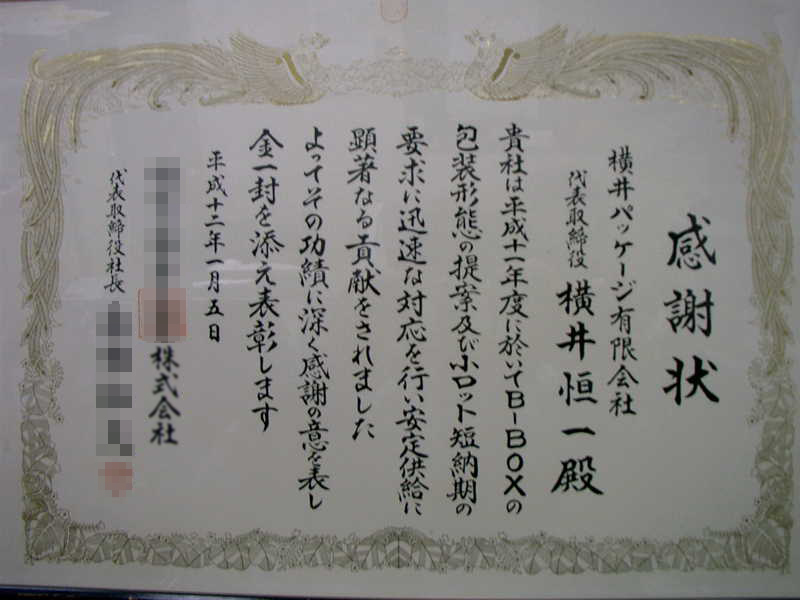 感謝状
横井パッケージ有限会社
代表取締役 横井恒一殿
貴社は平成十一年度に於いてB-BOXの
包装形態の提案及び小ロット短納期の
要求に迅速な対応を行い安定供給に
顕著なる貢献をされました
よってその功績に深く感謝の意を表し
金一封を添え表彰します
平成十二年一月五日
株式会社
代表取締役社長